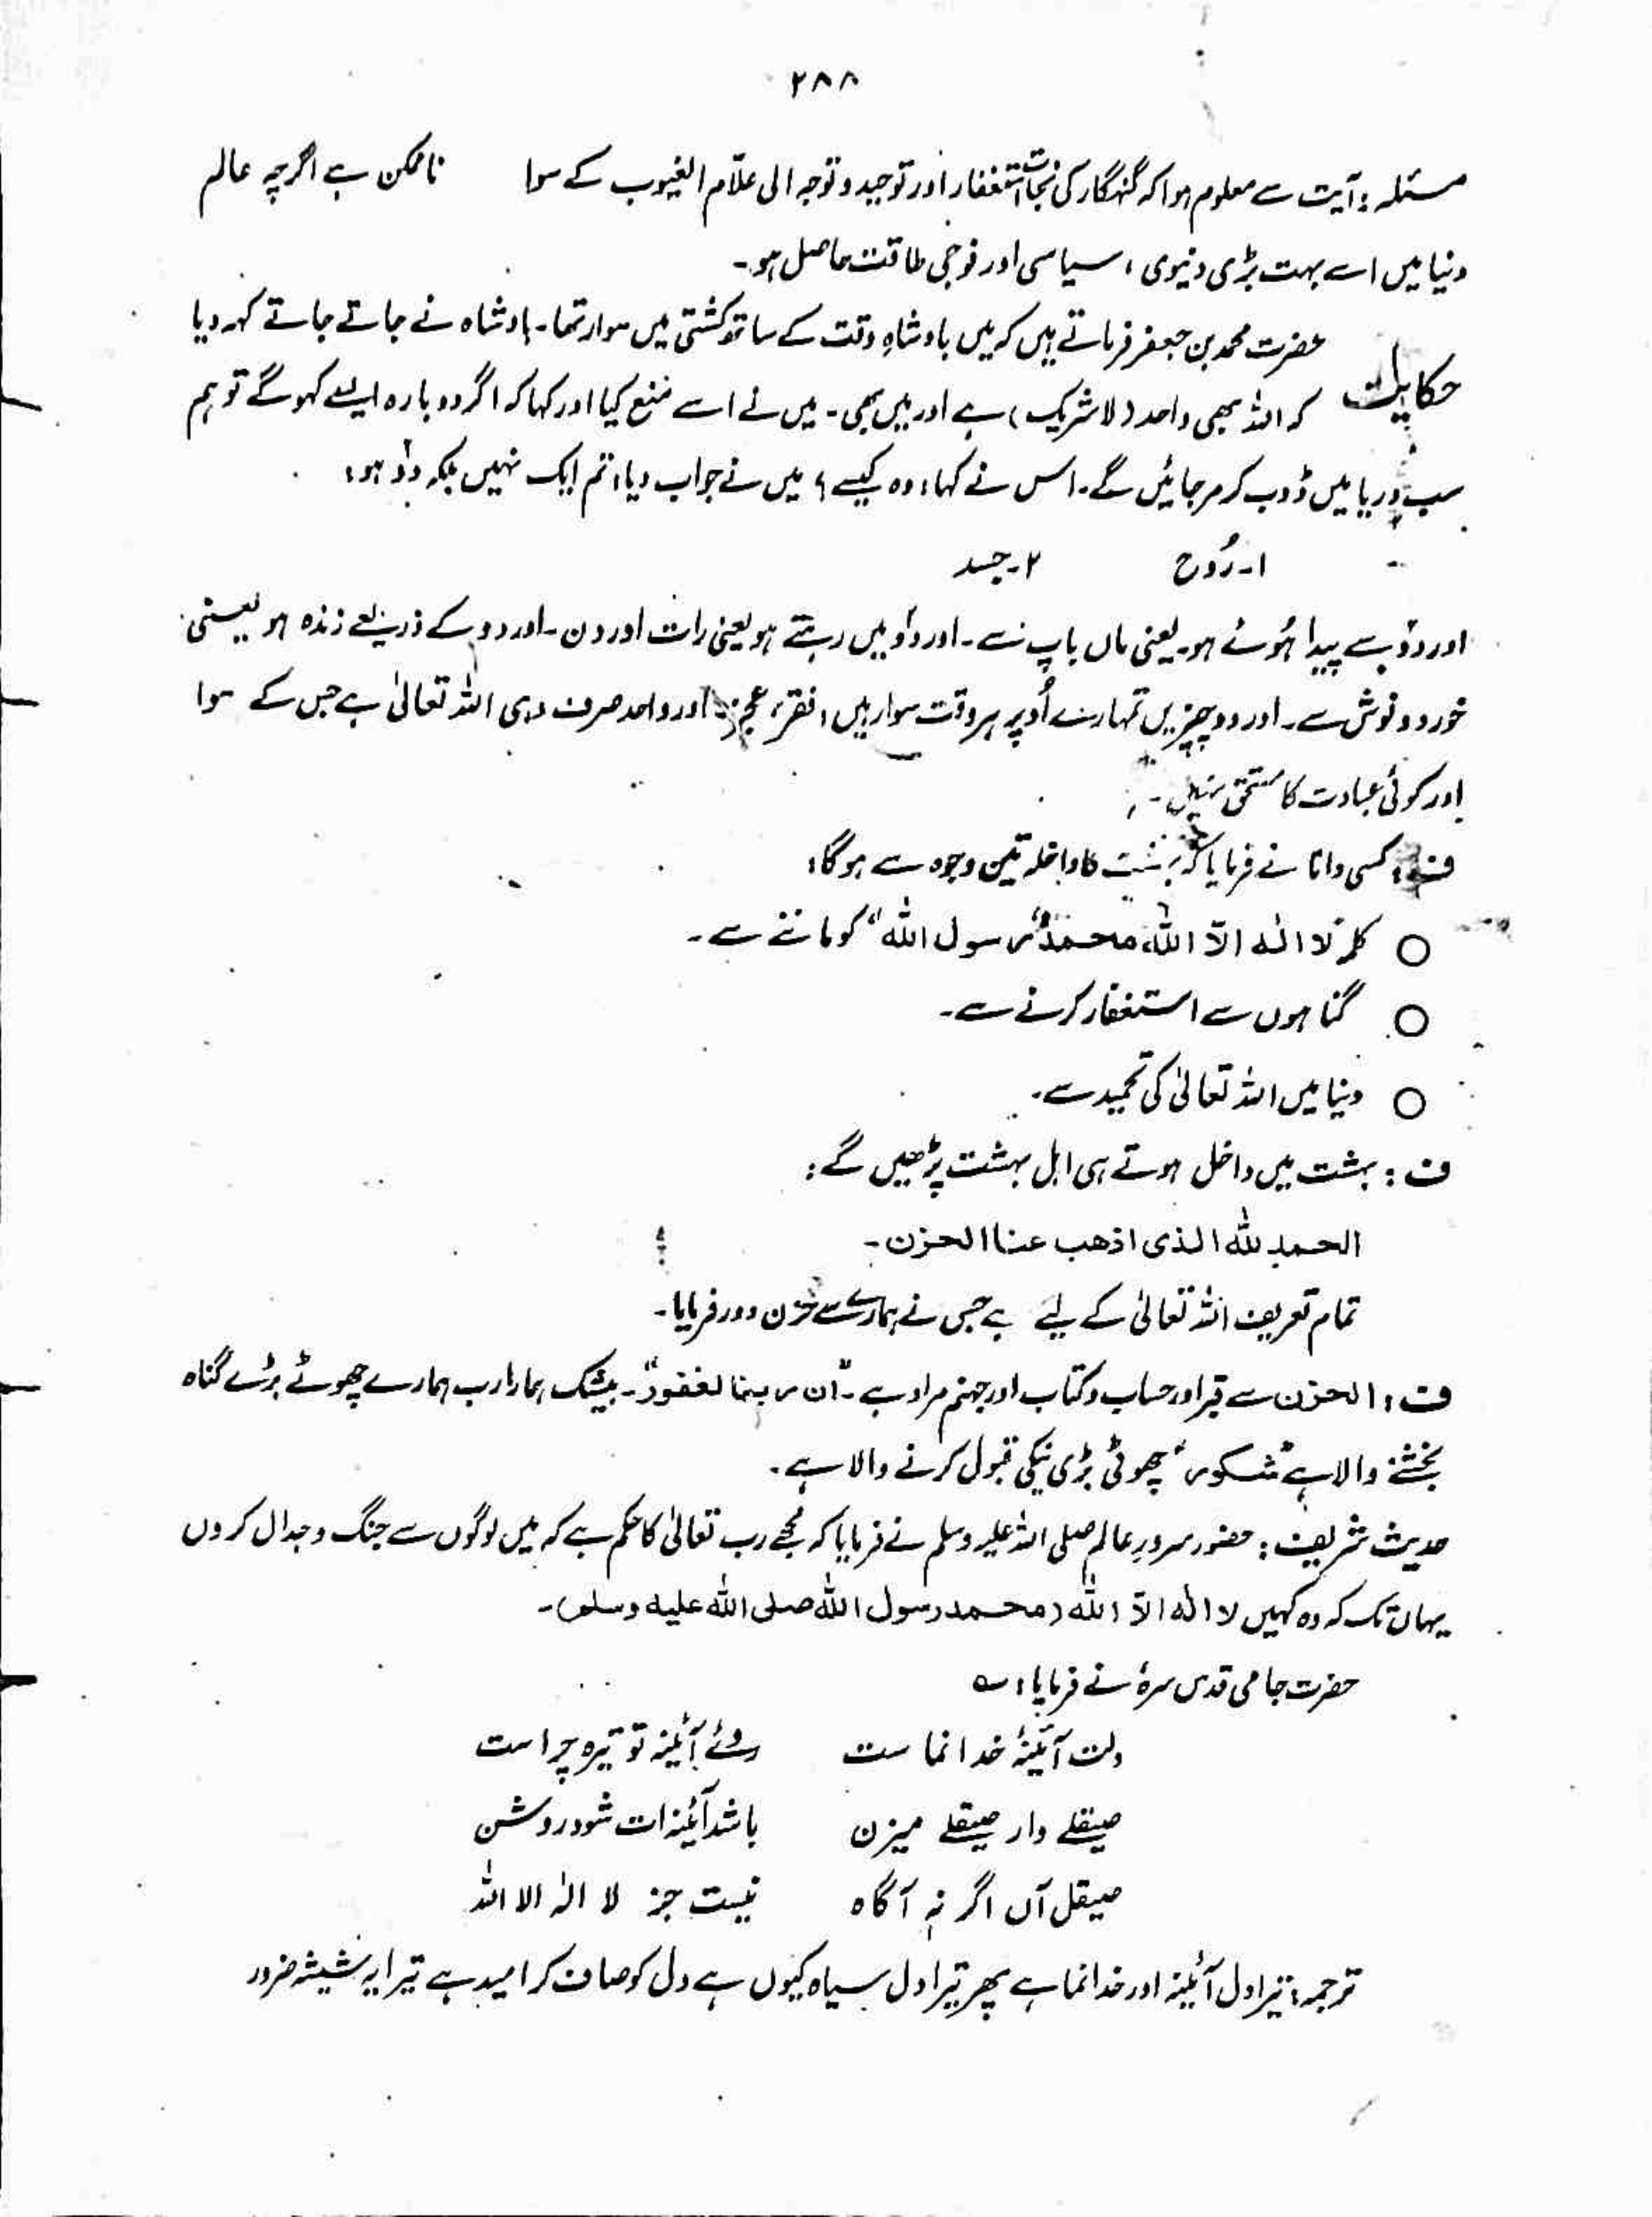 ۲۸۸
مسئلہ : آیت سے معلوم ہوا کہ گنہگار کی نجات استغفار اور توحید و توجہ الی علّام الغیوب کے سوا ناممکن ہے اگرچہ عالم
دنیا میں اسے بہت بڑی دنیوی ، سیاسی اور فوجی طاقت حاصل ہو۔
حضرت محمد بن جعفر فرماتے ہیں کہ میں بادشاہِ وقت کے ساتھ کشتی میں سوار تھا۔ بادشاہ نے جاتے جاتے کہہ دیا
حکایت کہ اللہ بھی واحد (لاشریک) ہے اور میں بھی۔ میں نے اسے منع کیا اور کہا کہ اگر دوبارہ ایسے کہو گے تو ہم
سب دریا میں ڈوب کر مر جائیں گے۔ اس نے کہا : وہ کیسے ؟ میں نے جواب دیا : تم ایک نہیں بلکہ دو ہو :
۱۔ رُوح ۲۔ جسد
اور دو سے پیدا ہُوئے ہو۔ یعنی ماں باپ سے۔ اور دو میں رہتے ہو یعنی رات اور دن۔ اور دو کے ذریعے زندہ ہو یعنی
خورد و نوش سے۔ اور دو چیزیں تمہارے اُوپر ہر وقت سوار ہیں : فقر ، عجز۔ اور واحد صرف وہی اللہ تعالیٰ ہے جس کے سوا
اور کوئی عبادت کا مستحق نہیں۔
ف : کسی دانا نے فرمایا کہ بہشت کا داخلہ تین وجوہ سے ہوگا :
○ کلمہ لا الٰہ الّا اللہ محمدٌ رسول اللہ" کو ماننے سے۔
○ گناہوں سے استغفار کرنے سے۔
○ دنیا میں اللہ تعالیٰ کی تحمید سے۔
ف : بہشت میں داخل ہوتے ہی اہل بہشت پڑھیں گے :
الحمد للہ الذی اذھب عنا الحزن۔
تمام تعریف اللہ تعالیٰ کے لیے ہے جس نے ہمارے سے حزن دور فرمایا۔
ف : الحزن سے قبر اور حساب و کتاب اور جہنم مراد ہے۔ "ان ربنا لغفور"۔ بیشک ہمارا رب ہمارے چھوٹے بڑے گناہ
بخشنے والا ہے "شکور" چھوٹی بڑی نیکی قبول کرنے والا ہے۔
حدیث شریف : حضور سرورِ عالم صلی اللہ علیہ وسلم نے فرمایا کہ مجھے رب تعالیٰ کا حکم ہے کہ میں لوگوں سے جنگ و جدال کروں
یہاں تک کہ وہ کہیں لا الٰہ الّا اللہ (محمد رسول اللہ صلی اللہ علیہ وسلم)۔
حضرت جامی قدس سرہٗ نے فرمایا : ؎
دلت آئینۂ خدا نما ست روئے آئینہ تو تیرہ چرا ست
صیقلے دار صیقلے میزن باشد آئینہ ات شود روشن
صیقل آں اگر نہ آگاہ نیست جز لا الٰہ الا اللہ
ترجمہ : تیرا دل آئینہ اور خدا نما ہے پھر تیرا دل سیاہ کیوں ہے دل کو صاف کر امید ہے تیرا یہ شیشہ ضرور